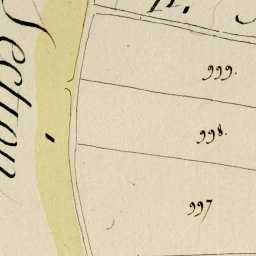 Section
999.
998.
997